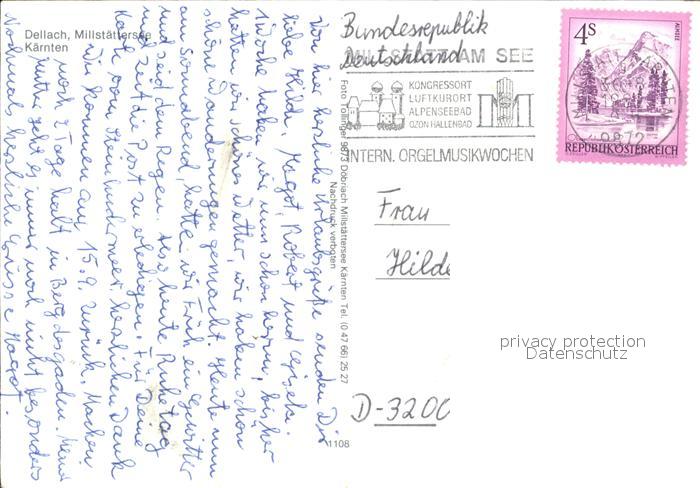 Dellach, Millstättersee
Kärnten
Von hier herzliche Urlaubsgrüße senden Dir
liebe Hilde, Magot, Robert und Gisela.
1 Woche haben wir nun schon herum, bisher
hatten wir schönes Wetter, wir haben schon
schöne Wanderungen gemacht. Heute nun
am Sonnabend, hatten wir früh ein Gewitter
und seid dem Regen. Also heute Ruhetag
und Zeit die Post zu erledigen. Für Deine
Karte vom herzlichen Dank
Wir kommen am 15.9. zurück. Machen
noch 2 Tage halt in Bergdesgaden. Meiner
Mutter geht es immer noch nicht besonders
Nochmals herzliche Grüsse Magot.
Foto Tollinger 9873 Döbriach Millstättersee Kärnten Tel. (0 47 66) 25 27
Nachdruck verboten
1108
Bundesrepublik
Deutschland
MILLSTATT AM SEE
KONGRESSORT
LUFTKURORT
ALPENSEEBAD
OZON HALLENBAD
INTERN. ORGELMUSIKWOCHEN
4S
ALMSEE
9872
REPUBLIK ÖSTERREICH
Frau
Hilde
privacy protection
Datenschutz
D-3200